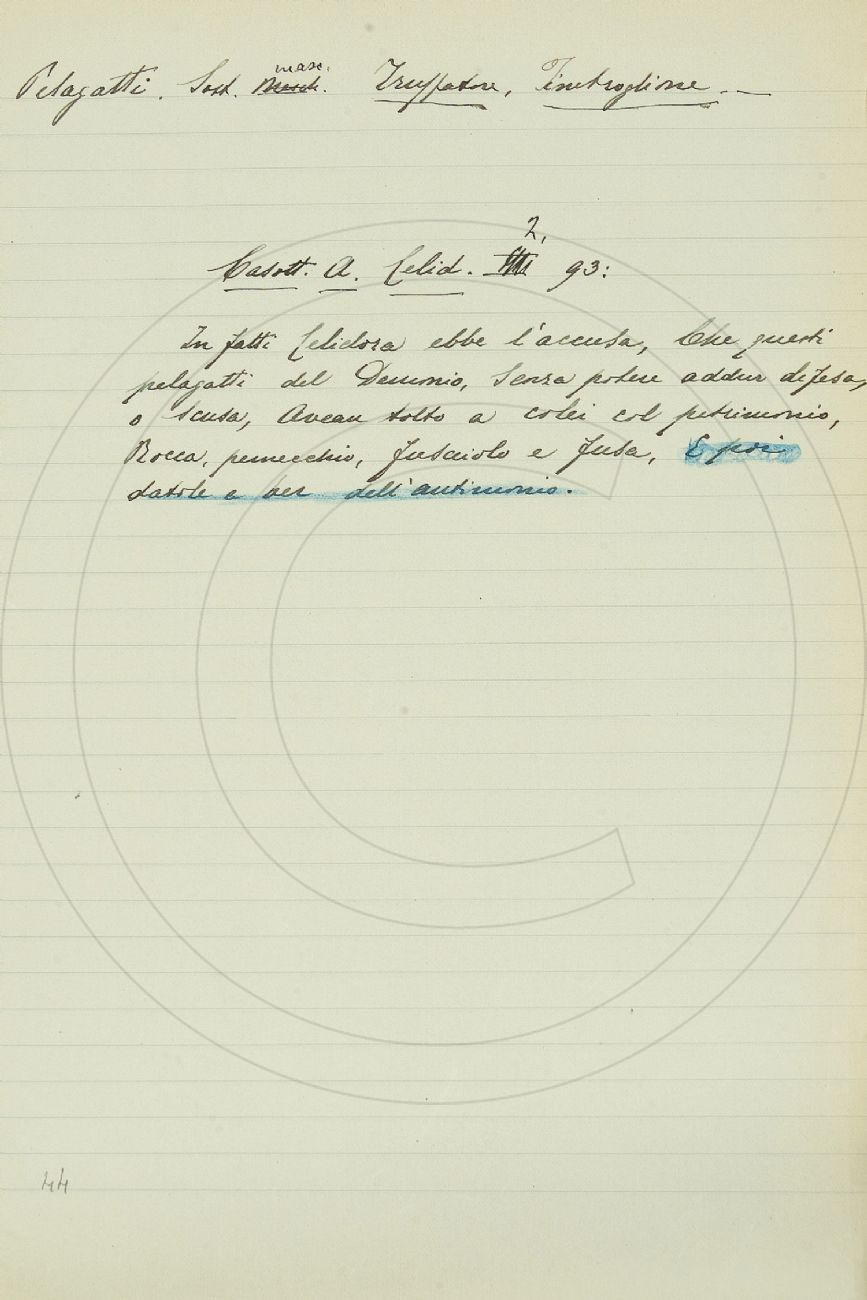 Pelagatti. Sost. masc. Truffatore, Imbroglione. —
Casott. A. Celid. 2, 93:
In fatti Celidora ebbe l'accusa, Che questi
pelagatti del Demonio, Senza potere addur difesa,
o scusa, Avean tolto a colei col petrimonio,
Rocca, pennecchio, fusaiolo e fusa, E poi
datole a ber dell'antimonio.
44